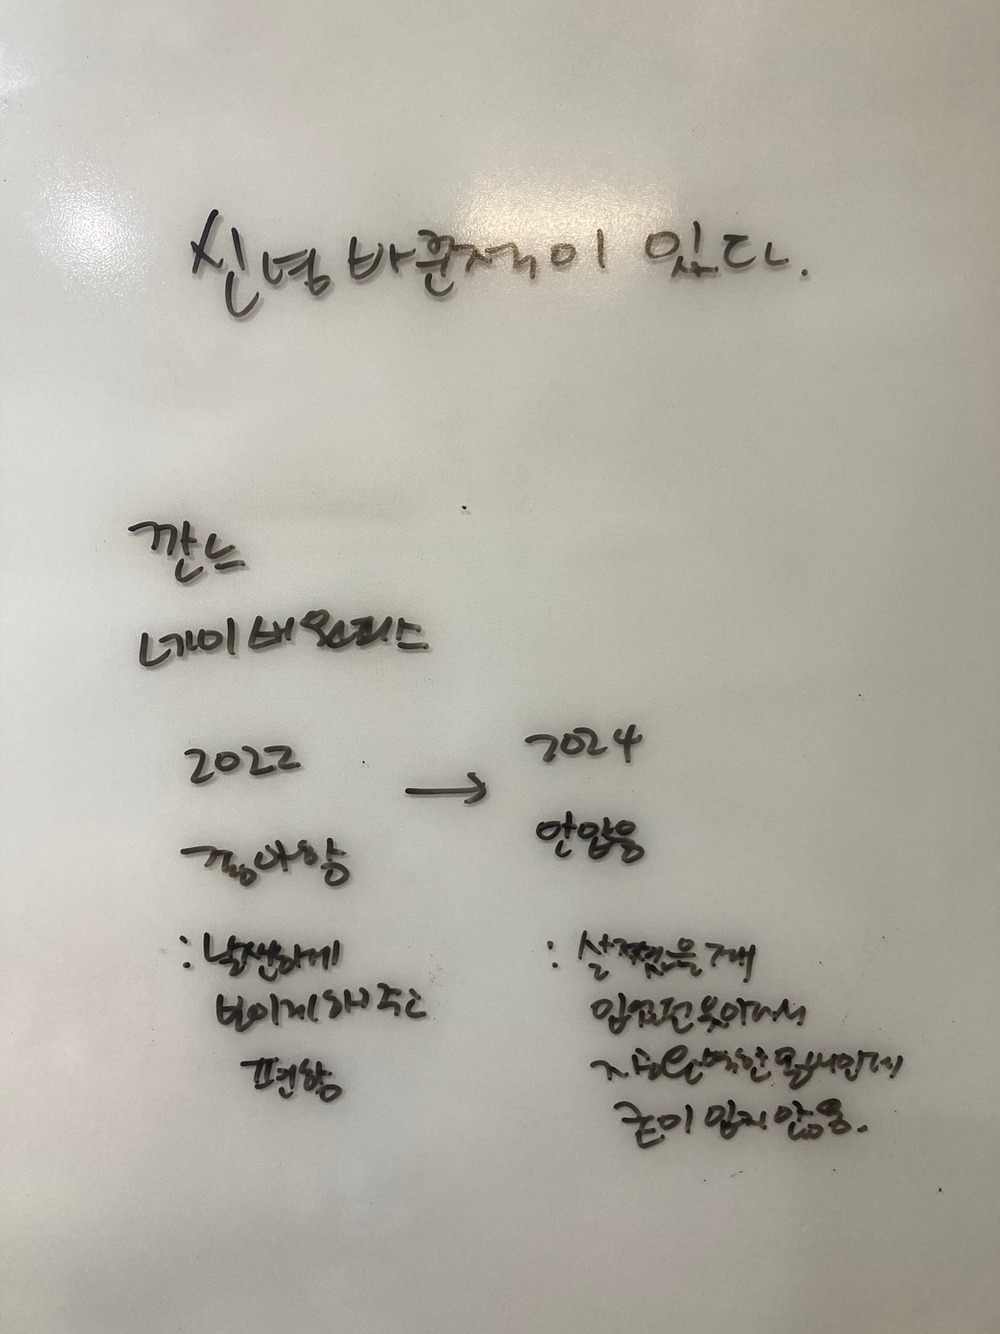 신념 바뀐적이 있다.
깐느
네이비 원피스
2022
→
2024
좋아함
안입음
: 날씬하게
보이게 해주고
편함
: 살쪘을 때
입었던 옷이라서
지금은
굳이 입지 않음.